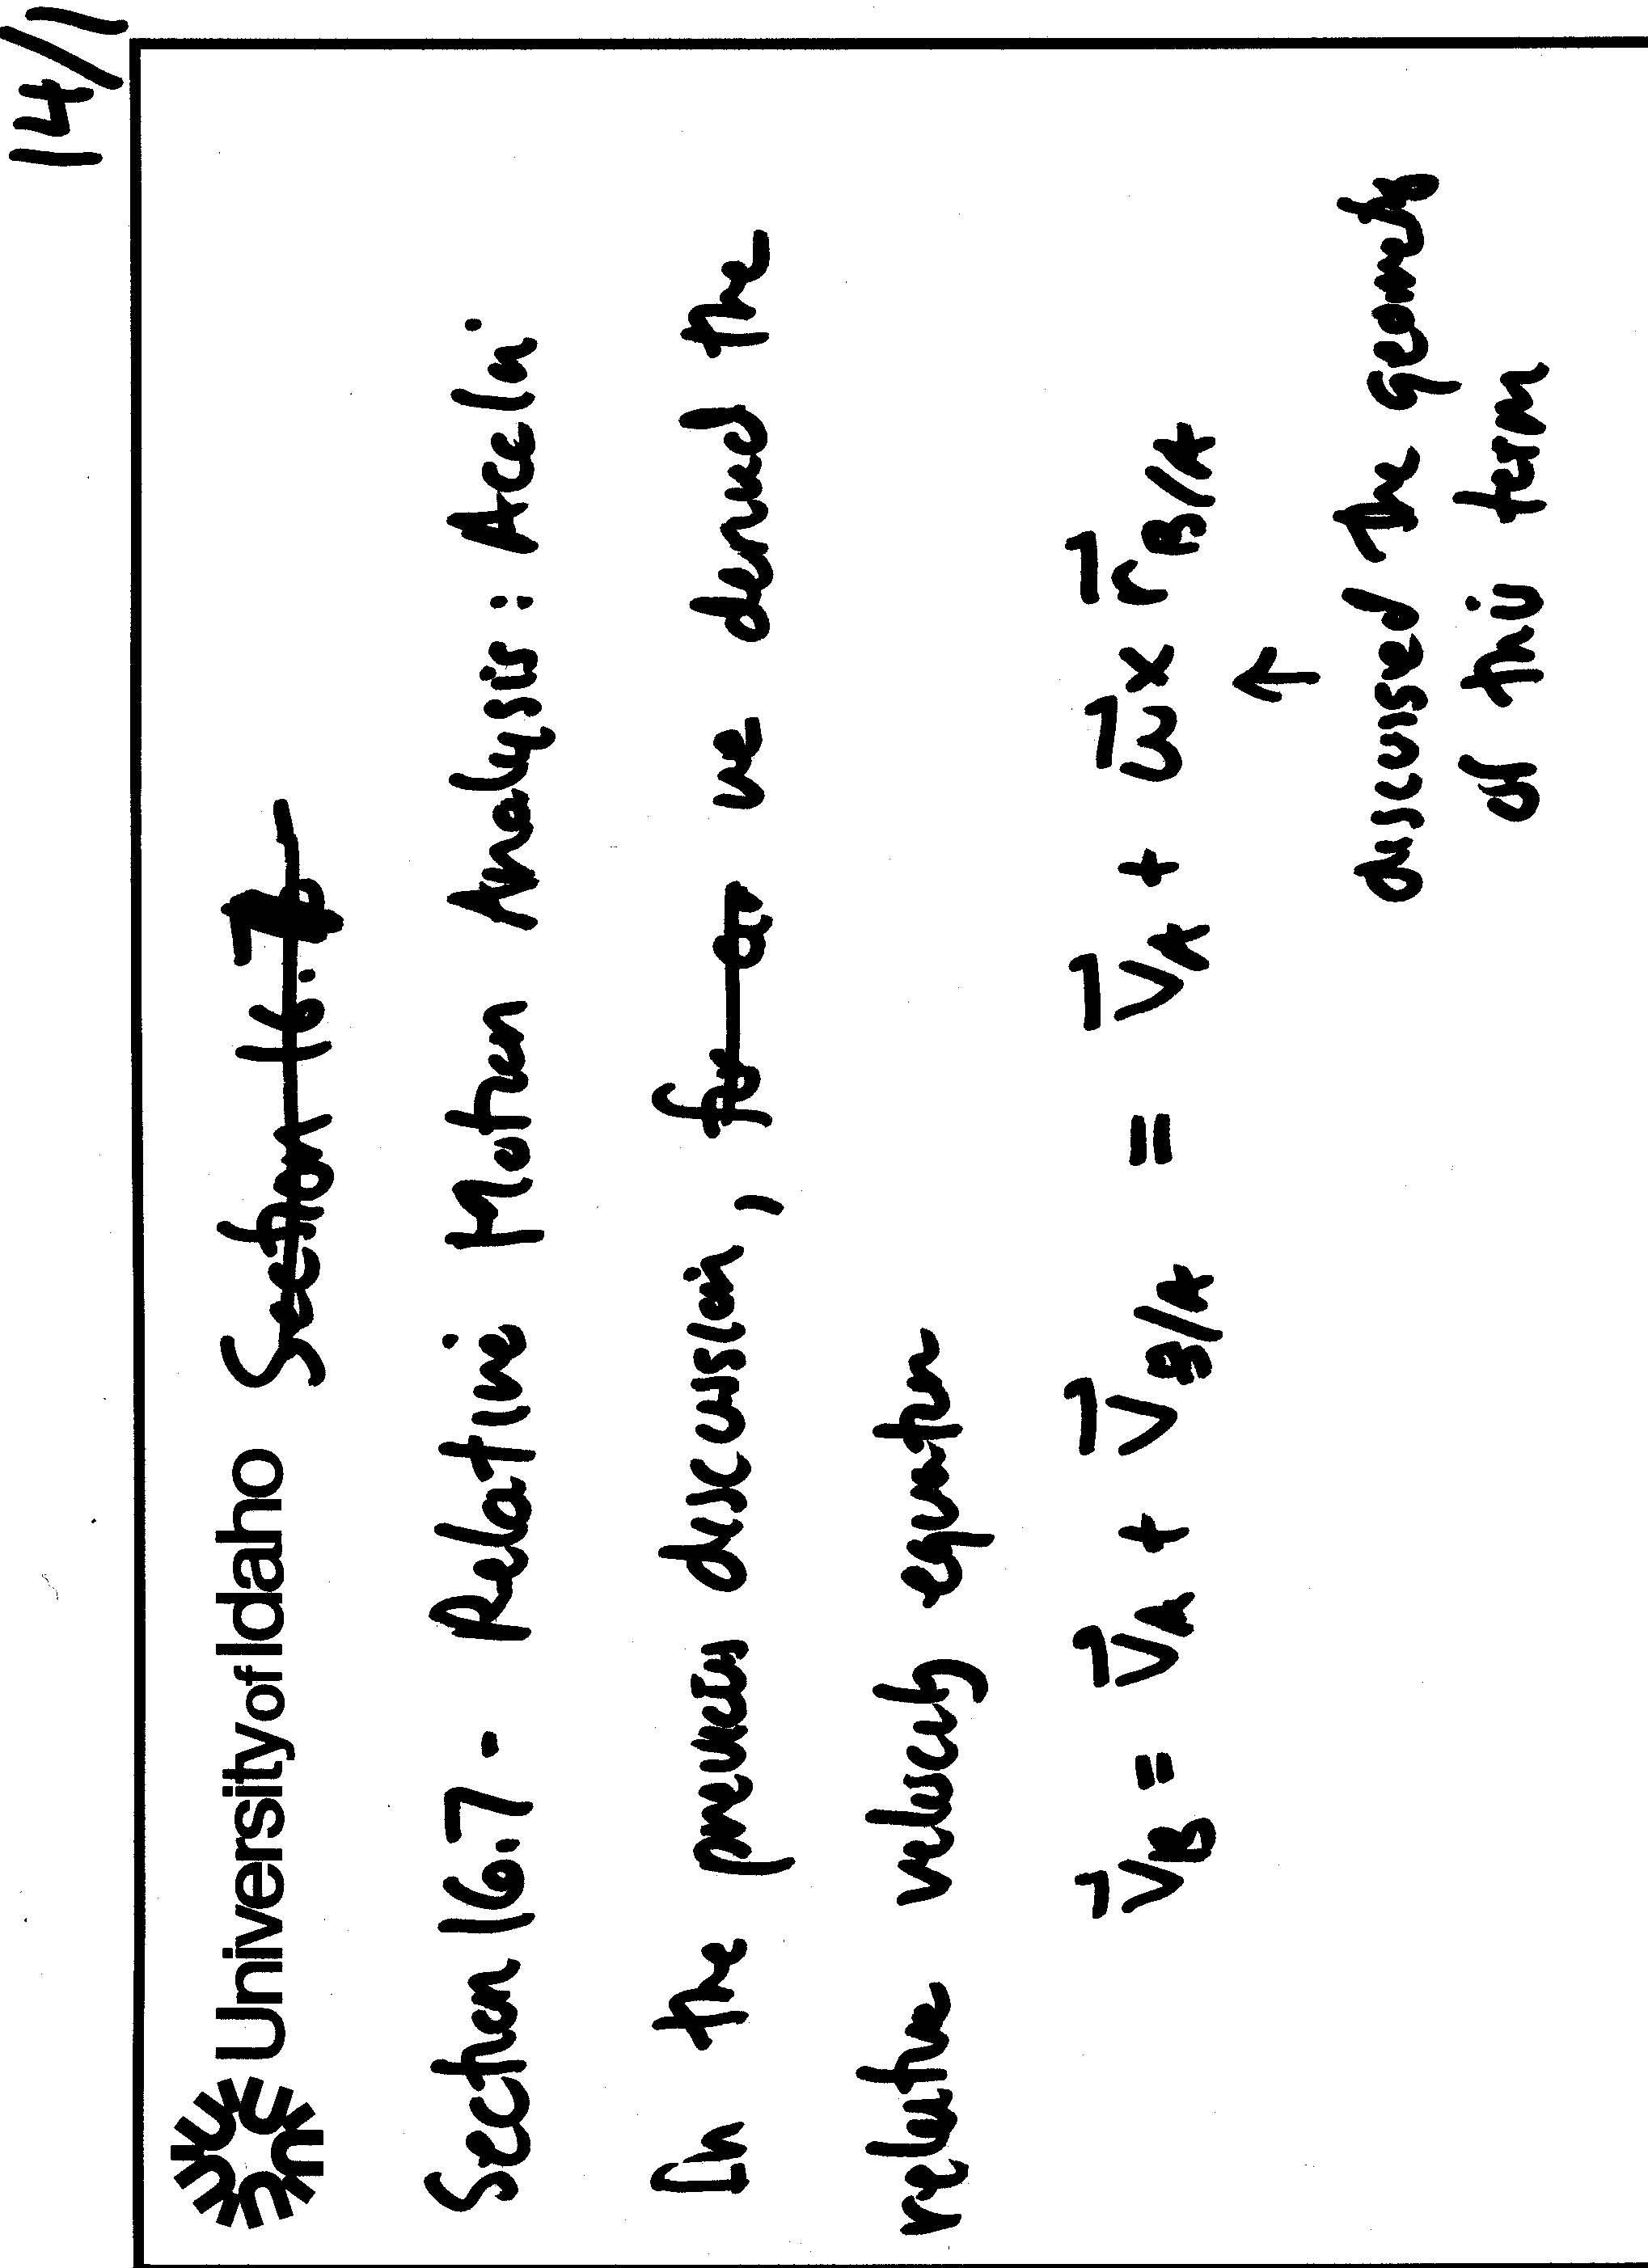 14/1
University of Idaho Section 16.7
Section 16.7 - Relative Motion Analysis: Acceln.
In the previous discussion, for a we derived the
relative velocity equation
V⃗B = V⃗A + V⃗B/A = V⃗A + ω⃗ × r⃗B/A
↑
discussed the geometry
of this term